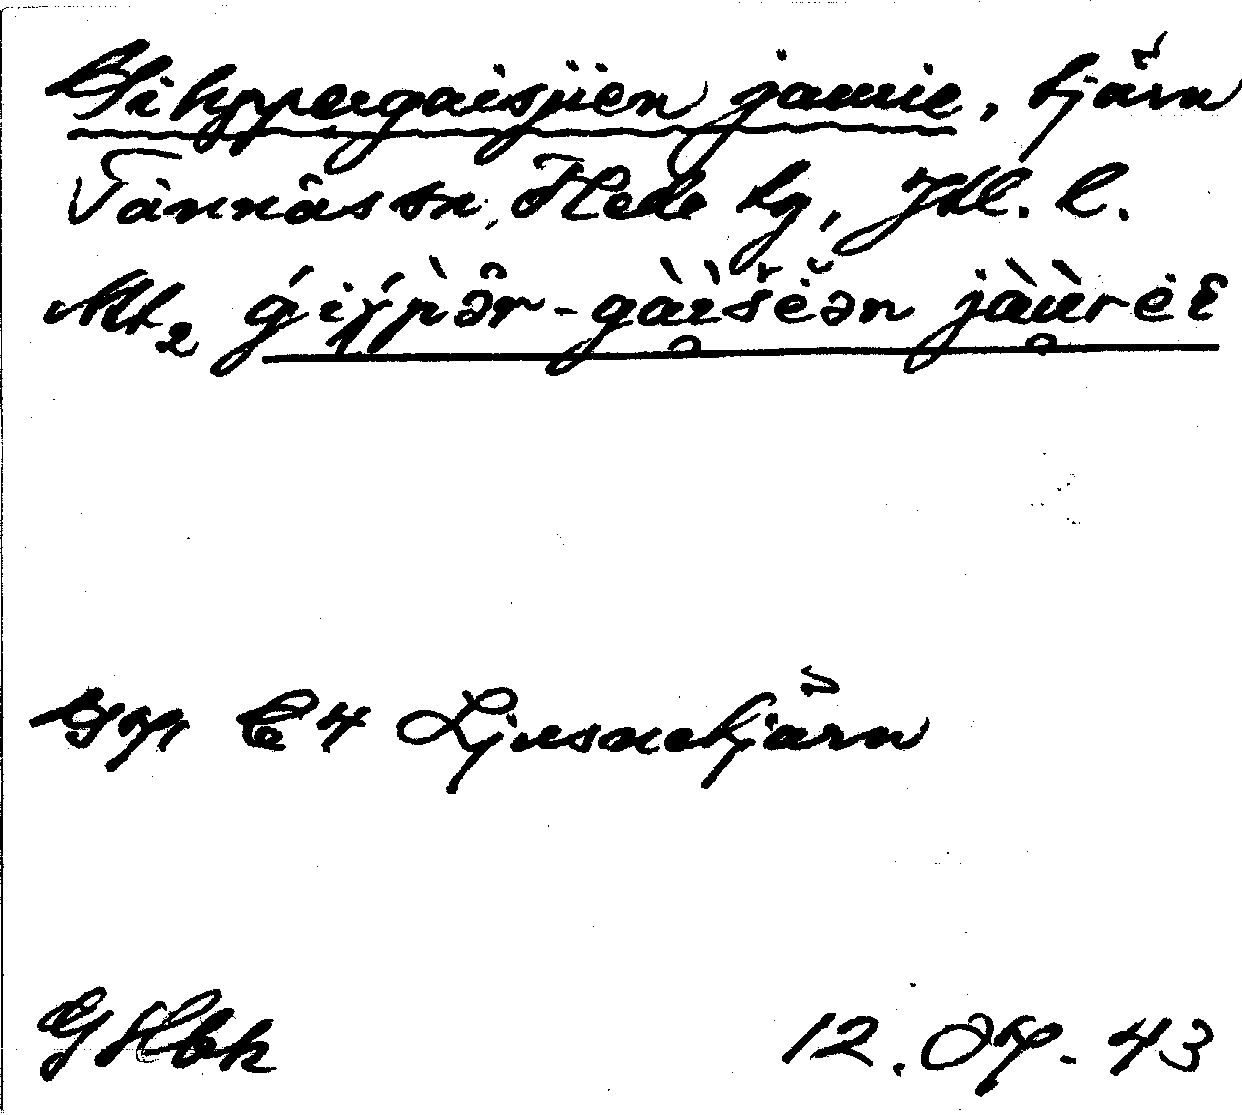 Gihppergaisjien jaurie, tjärn
Tännäs sn, Hede tg, Jtl. l.
Mt₂ ǵiγ́pə̀r-gàìsěən jàùrèè
Gp C4 Ljusnetjärn
G Hbk 12. Op. 43